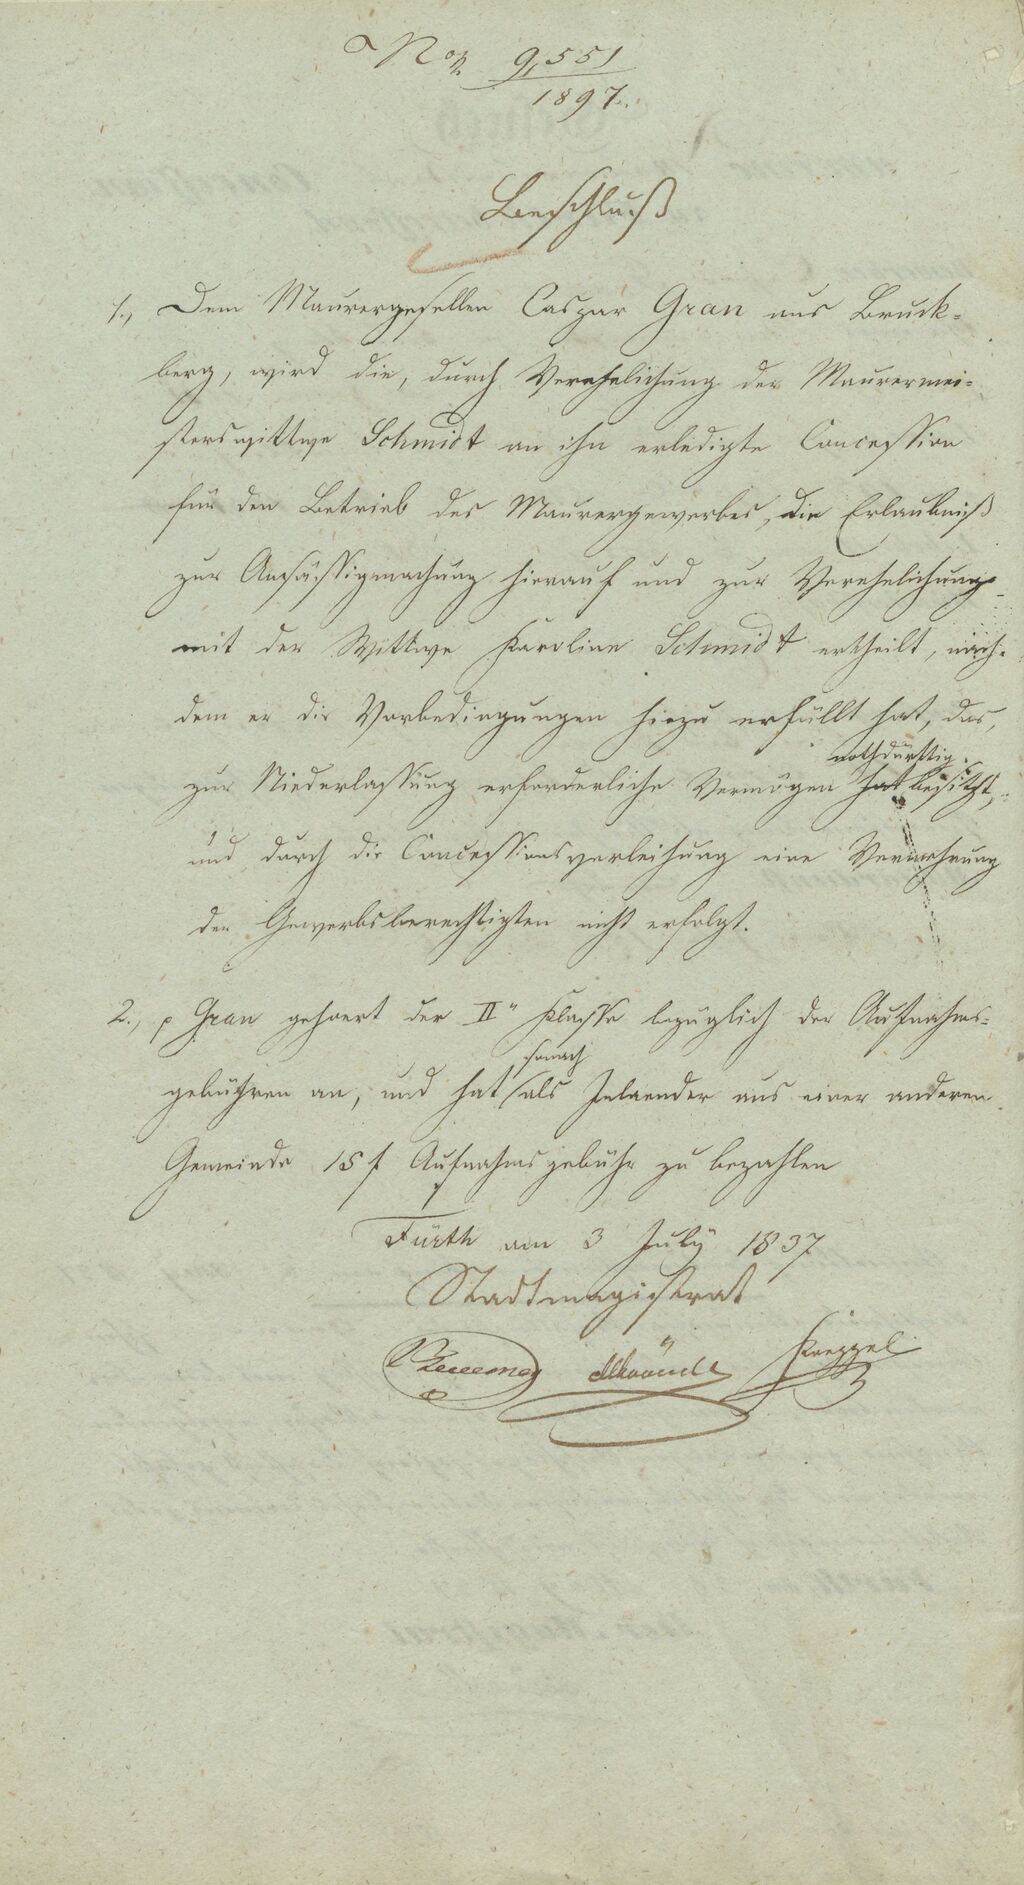 9,551
1897.
Beschluß
1., Dem Maurergesellen Caspar Gran aus Bruck-
berg, wird die, durch Verehelichung der Maurermei-
sterswittwe Schmidt an ihn erledigte Concession
für den Betrieb des Maurergewerbes, die Erlaubniß
zur Ansäßigmachung hierauf und zur Verehelichung
mit der Wittwe Karoline Schmidt ertheilt, nach-
dem er die Vorbedingungen hiezu erfüllt hat, das,
nothdürftig
zur Niederlassung erforderliche Vermögen hat besitzt,
und durch die Concessionsverleihung eine Vermehrung
der Gewerbsberechtigten nicht erfolgt.
2., p Gran gehoert der II Klasse bezüglich der Aufnahms-
sonach
gebühren an, und hat als Inlaender aus einer anderen
Gemeinde 15 f Aufnahmsgebühr zu bezahlen
Fürth am 3 July 1837
Stadtmagistrat